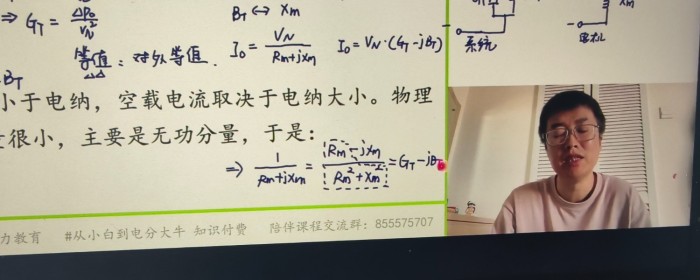 ⇒ G_T = ΔP₀/V_N²
B_T ↔ X_m
等值：对外等值. I₀ = V_N/(R_m+jX_m) I₀ = V_N·(G_T-jB_T)
系统
B_T
小于电纳，空载电流取决于电纳大小。物理
很小，主要是无功分量，于是：
⇒ 1/(R_m+jX_m) = (R_m-jX_m)/(R_m²+X_m²) = G_T-jB_T
力教育 #从小白到电分大牛 知识付费 陪伴课程交流群：855575707